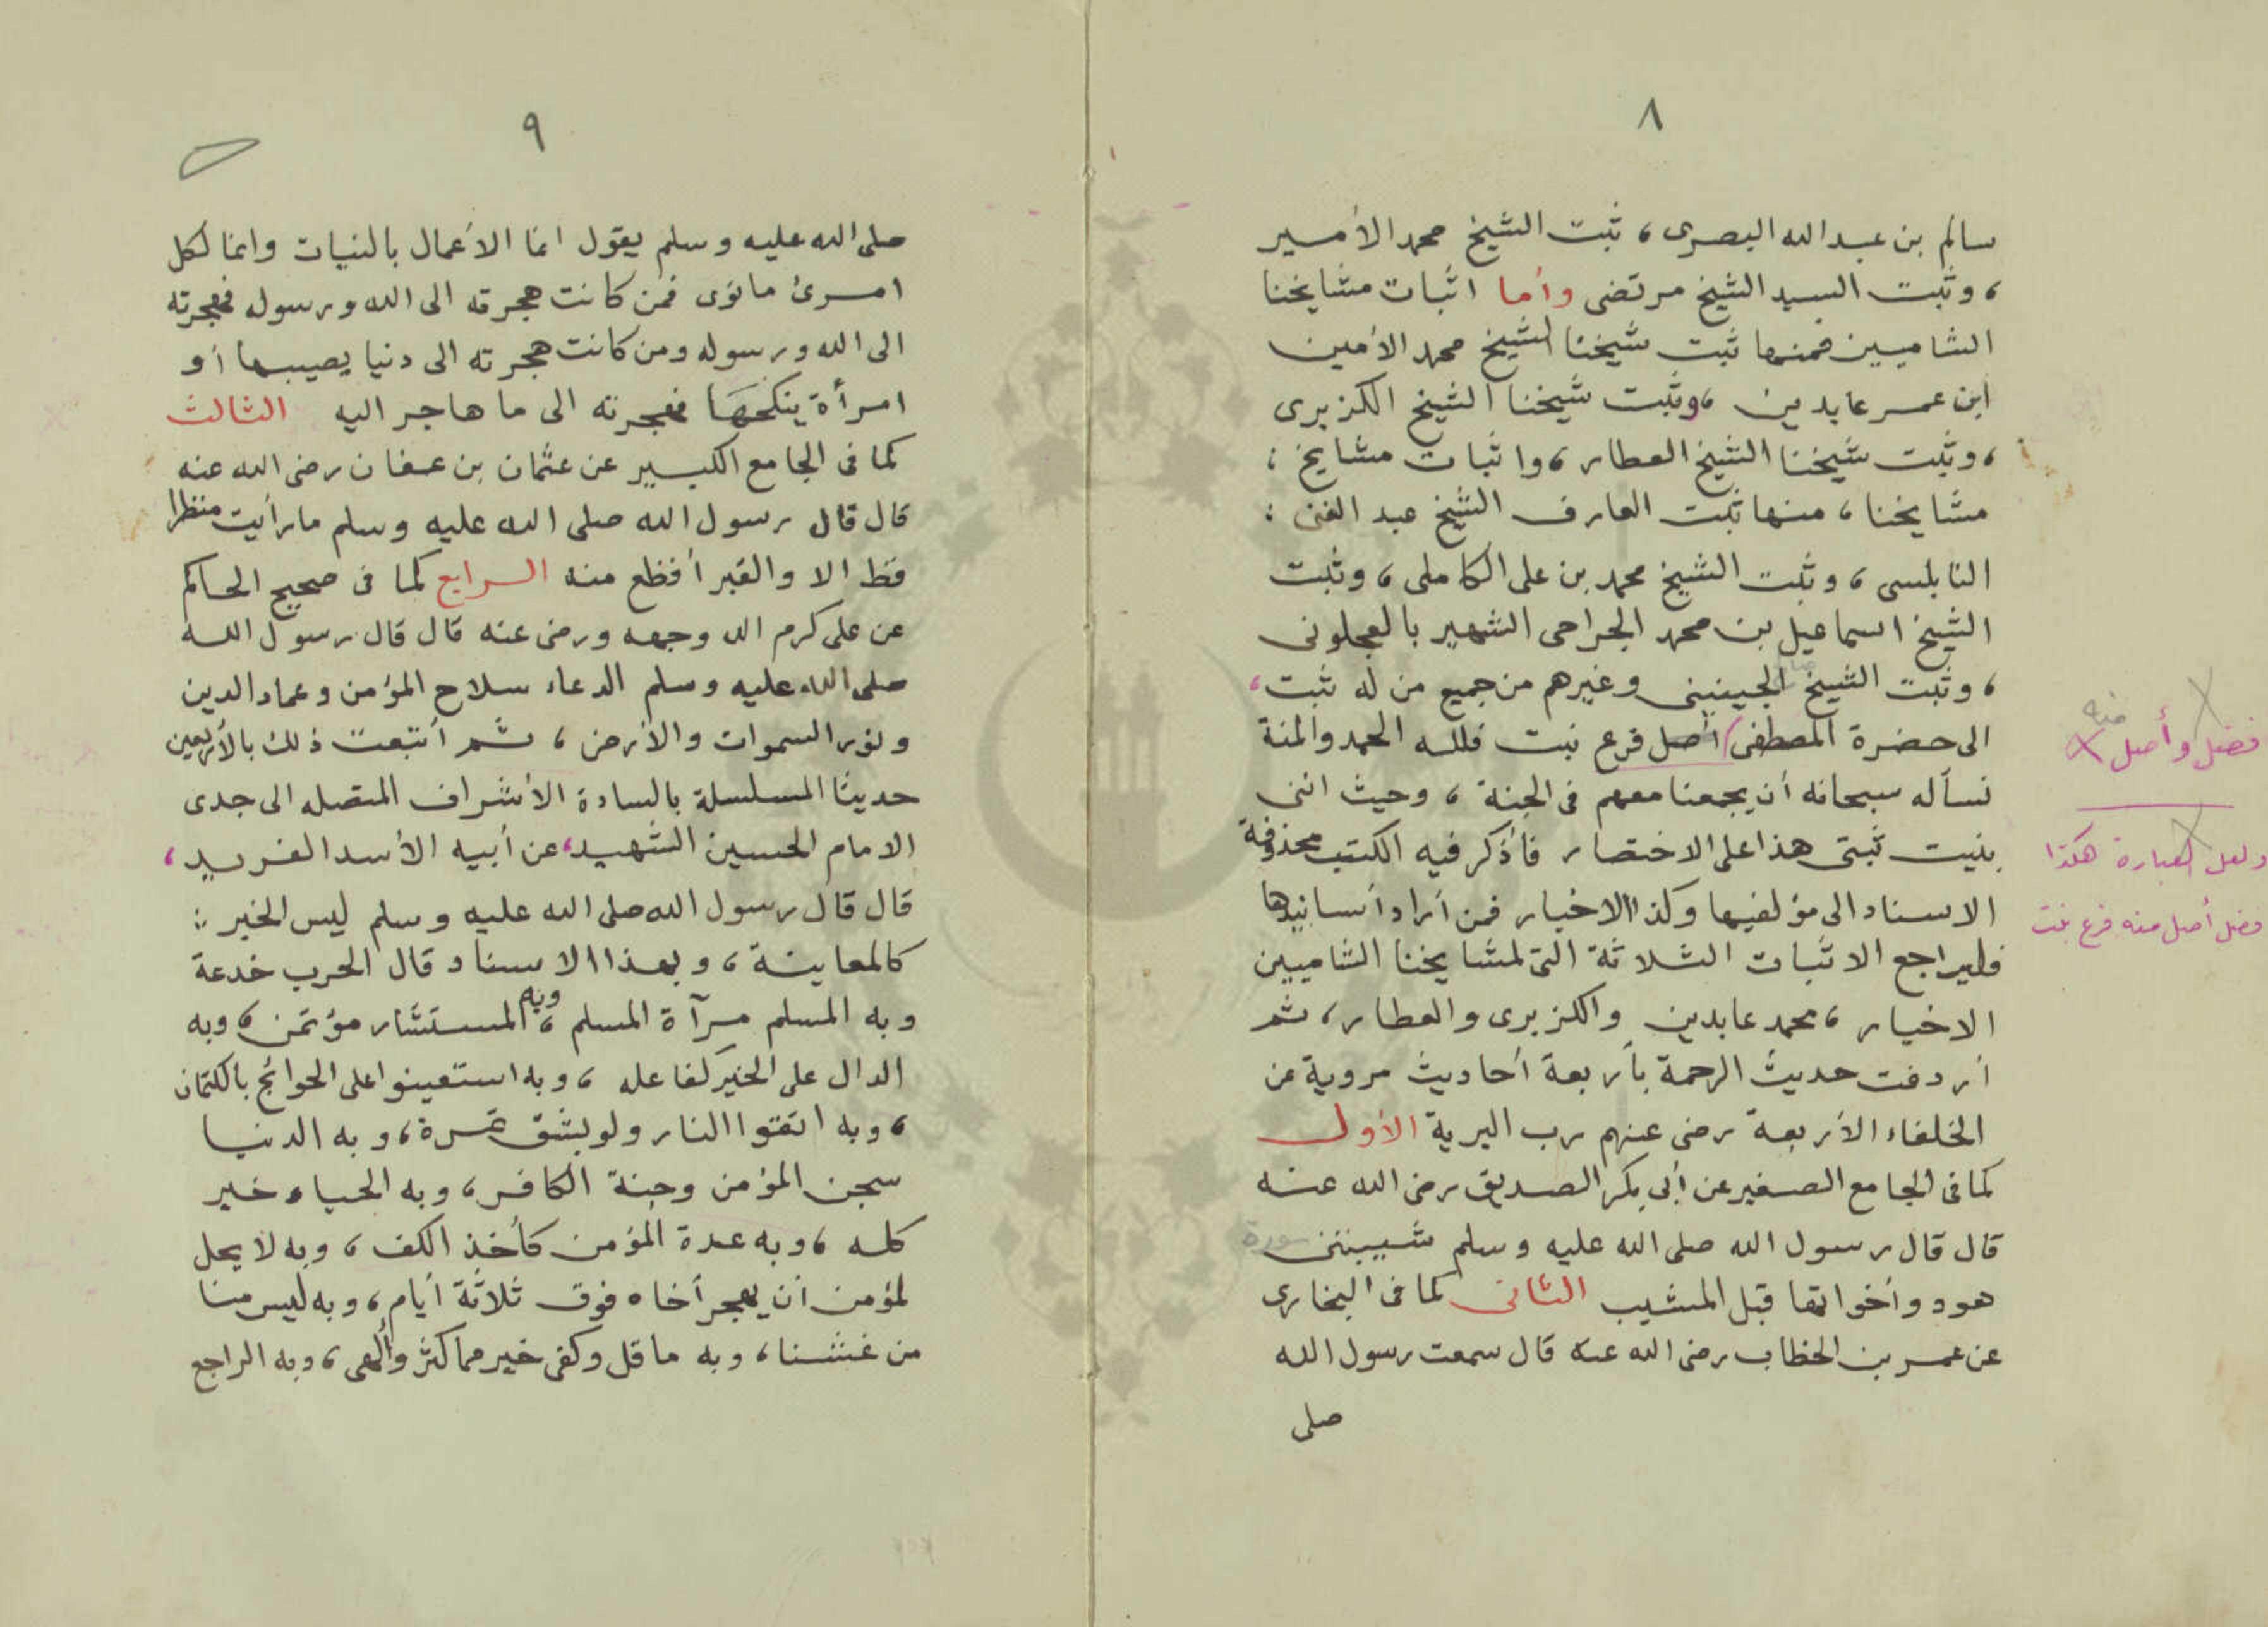 ٨
سالم بن عبدالله البصرى، ثبت الشيخ محمد الأمير
، وثبت السيد الشيخ مرتضى وأما اثبات مشايخنا
الشاميين فمنها ثبت شيخنا الشيخ محمد الأمين
ابن عمر عابدين ،وثبت شيخنا الشيخ الكزبرى
، وثبت شيخنا الشيخ العطار ، واثبات مشايخ ؛
مشايخنا ، منها ثبت العارف الشيخ عبد الغنى :
النابلسى ، وثبت الشيخ محمد بن على الكاملى ، وثبت
الشيخ اسماعيل بن محمد الجراحى الشهير بالعجلونى
، وثبت الشيخ الجينينى وغيرهم من جميع من له ثبت ،
الى حضرة المصطفى أصل فرع نبت فلله الحمد والمنة
نسأله سبحانه أن يجمعنا معهم فى الجنة ، وحيث اننى
بنيت ثبتى هذا على الاختصار فأذكر فيه الكتب محذوفة
الاسناد الى مؤلفيها وكذا الاخبار فمن أراد أسانيدها
فليراجع الاثبات الثلاثة التى لمشايخنا الشاميين
الاخيار ، محمد عابدين والكزبرى والعطار ، ثم
أردفت حديث الرحمة بأربعة أحاديث مروية عن
الخلفاء الأربعة رضى عنهم رب البرية الأول
كما فى الجامع الصغير عن أبى بكر الصديق رضى الله عنه
قال قال رسول الله صلى الله عليه وسلم شيبتنى سورة
هود وأخواتها قبل المشيب الثانى كما فى البخارى
عن عمر بن الخطاب رضى الله عنه قال سمعت رسول الله
صلى
فضل وأصل
منه
ولعل العبارة هكذا
فضل أصل منه فرع نبت
٩
صلى الله عليه وسلم يقول انما الأعمال بالنيات وانما لكل
امرئ ما نوى فمن كانت هجرته الى الله ورسوله فهجرته
الى الله ورسوله ومن كانت هجرته الى دنيا يصيبها أو
امرأة ينكحها فهجرته الى ما هاجر اليه الثالث
كما فى الجامع الكبير عن عثمان بن عفان رضى الله عنه
قال قال رسول الله صلى الله عليه وسلم ما رأيت منظرا
قط الا والقبر أفظع منه الرابع كما فى صحيح الحاكم
عن على كرم الله وجهه ورضى عنه قال قال رسول الله
صلى الله عليه وسلم الدعاء سلاح المؤمن وعماد الدين
ونور السموات والأرض ، ثم أتبعت ذلك بالأربعين
حديثا المسلسلة بالسادة الأشراف المتصله الى جدى
الامام الحسين الشهيد، عن أبيه الأسد الفريد ،
قال قال رسول الله صلى الله عليه وسلم ليس الخبر :
كالمعاينة ، وبهذا الاسناد قال الحرب خدعة
وبه المسلم مرآة المسلم ، وبه المستشار مؤتمن ، وبه
الدال على الخير كفاعله ، وبه استعينوا على الحوائج بالكتمان
، وبه اتقوا النار ولو بشق تمرة ، وبه الدنيا
سجن المؤمن وجنة الكافر ، وبه الحياء خير
كله ، وبه عدة المؤمن كأخذ الكف ، وبه لا يحل
لمؤمن أن يهجر أخاه فوق ثلاثة أيام ، وبه ليس منا
من غشنا ، وبه ما قل وكفى خير مما كثر وألهى ، وبه الراجع